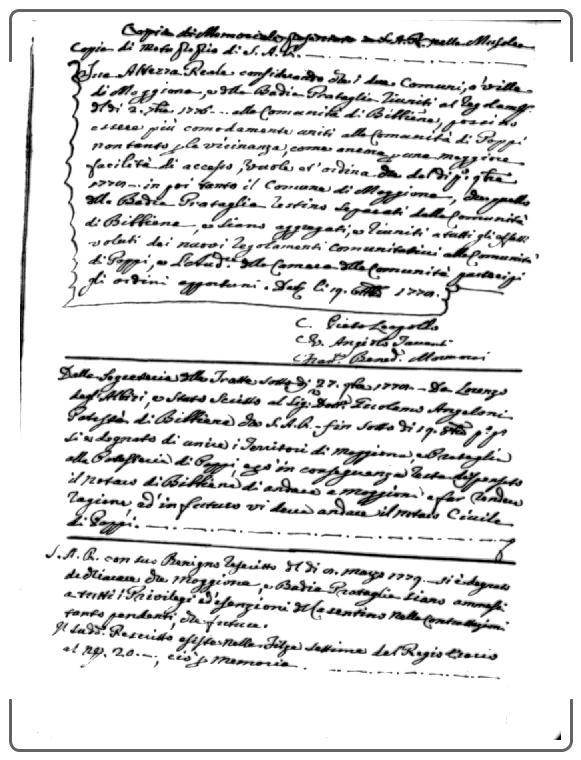 Copia di Motuproprio di S.A.R.
Sua Altezza Reale considerando che i due Comuni, o ville
di Moggiona, e della Badia Prataglia riuniti al
del dì 2. 7bre 1776. alla Comunità di Bibbiena, possino
essere più comodamente uniti alla Comunità di Poppi
non tanto per la vicinanza, come ancora per una maggiore
facilità di accesso, vuole ed ordina che del dì p.º 9bre
in poi tanto il Comune di Moggiona, che quello
della Badia Prataglia restino separati dalla Comunità
di Bibbiena, e siano aggregati, e riuniti a tutti gli effetti
voluti dai nuovi regolamenti comunitativi alla Comunità
di Poppi, e della Camera delle Comunità partecipi
gli ordini opportuni. Dat. li 19.
C. Pietro Leopoldo
C. V. Angiolo Tavanti
C. Bened. Mormorai
Dalla Segreteria delle Tratte sotto dì 27. Da Lorenzo
degl'Albizi, è stato scritto al Sig. Dott. Angeloni
Potestà di Bibbiena che S.A.R. fin sotto dì 19.
si è degnato di unire i Territori di Moggiona, e Prataglia
alla Potesteria di Poppi, e così in conseguenza resta dispensato
il notaro di Bibbiena di andare a Moggiona a far rendere
ragione, ed in futuro vi deve andare il notaro Civile
di Poppi.
S.A.R. con suo Benigno Rescritto del dì marzo 1779. si è degnato
dichiarare che Moggiona, e Badia Prataglia siano ammessi
a tutti i Privilegi ed esenzioni del Casentino nelle Contrattazioni
tanto pendenti, che future.
Il sudd. Rescritto esiste nella Filza settima del Regio
al N. 20. ciò per memoria